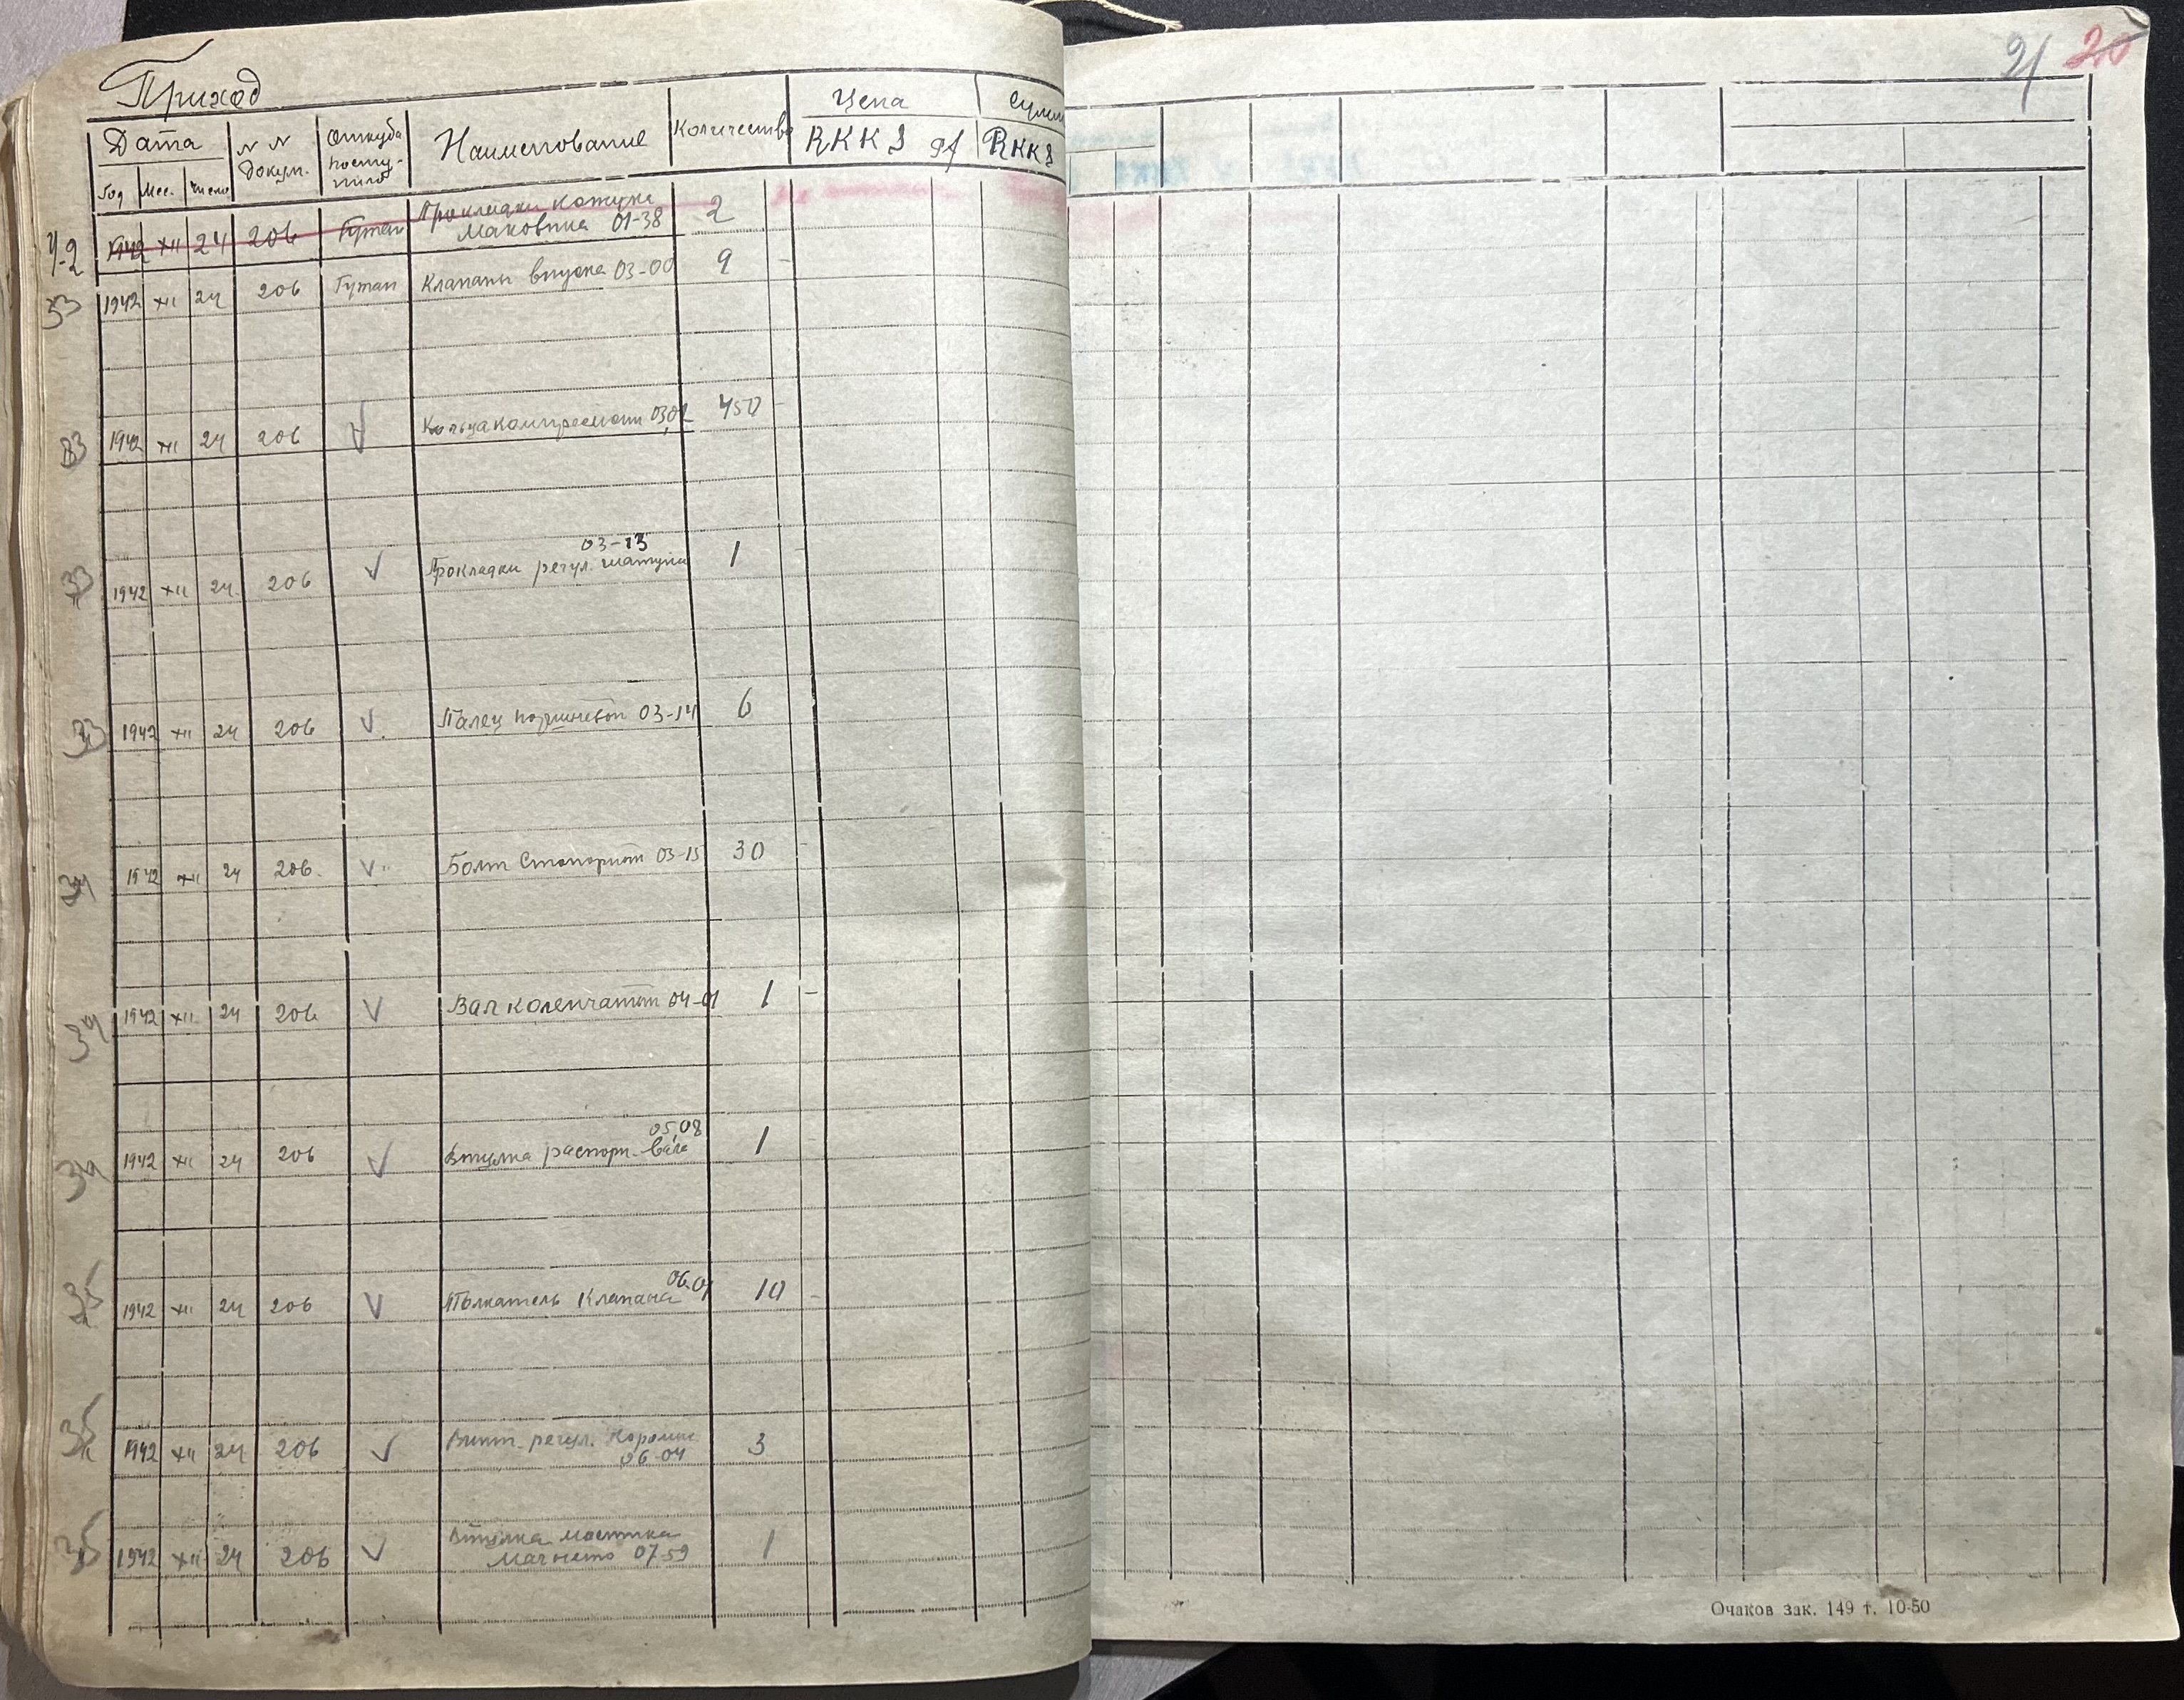 Приход
21 20
Дата N N докум. Откуда посту-пило Наименование Количество Цена Сумм
Год Мес. Число RKKS Pf RKKS
Прокладки кожуха
1942 XII 24 206 Гутап Маховика 01-38 2
33 1942 XII 24 206 Гутап Клапаны впуска 03-00 9 -
33 1942 XII 24 206 V Кольца компресион 03,02 450 -
03-13
33 1942 XII 24 206 V Прокладки регул. шатуна 1 -
33 1942 XII 24 206 V. Палец поршневой 03-14 6
34 1942 XII 24 206. V. Болт Стопорной 03-15 30 -
34 1942 XII 24 206 V Вал коленчатой 04-01 1 -
05,08
34 1942 XII 24 206 V Втулка распорн. вала 1 -
06-01
35 1942 XII 24 206 V Толкатель Клапана 10 -
35 1942 XII 24 206 V Винт регул. Коромыс. 3
06-04
Втулка мостика
35 1942 XII 24 206 V Магнето 07-59 1
Очаков зак. 149 т. 10-50